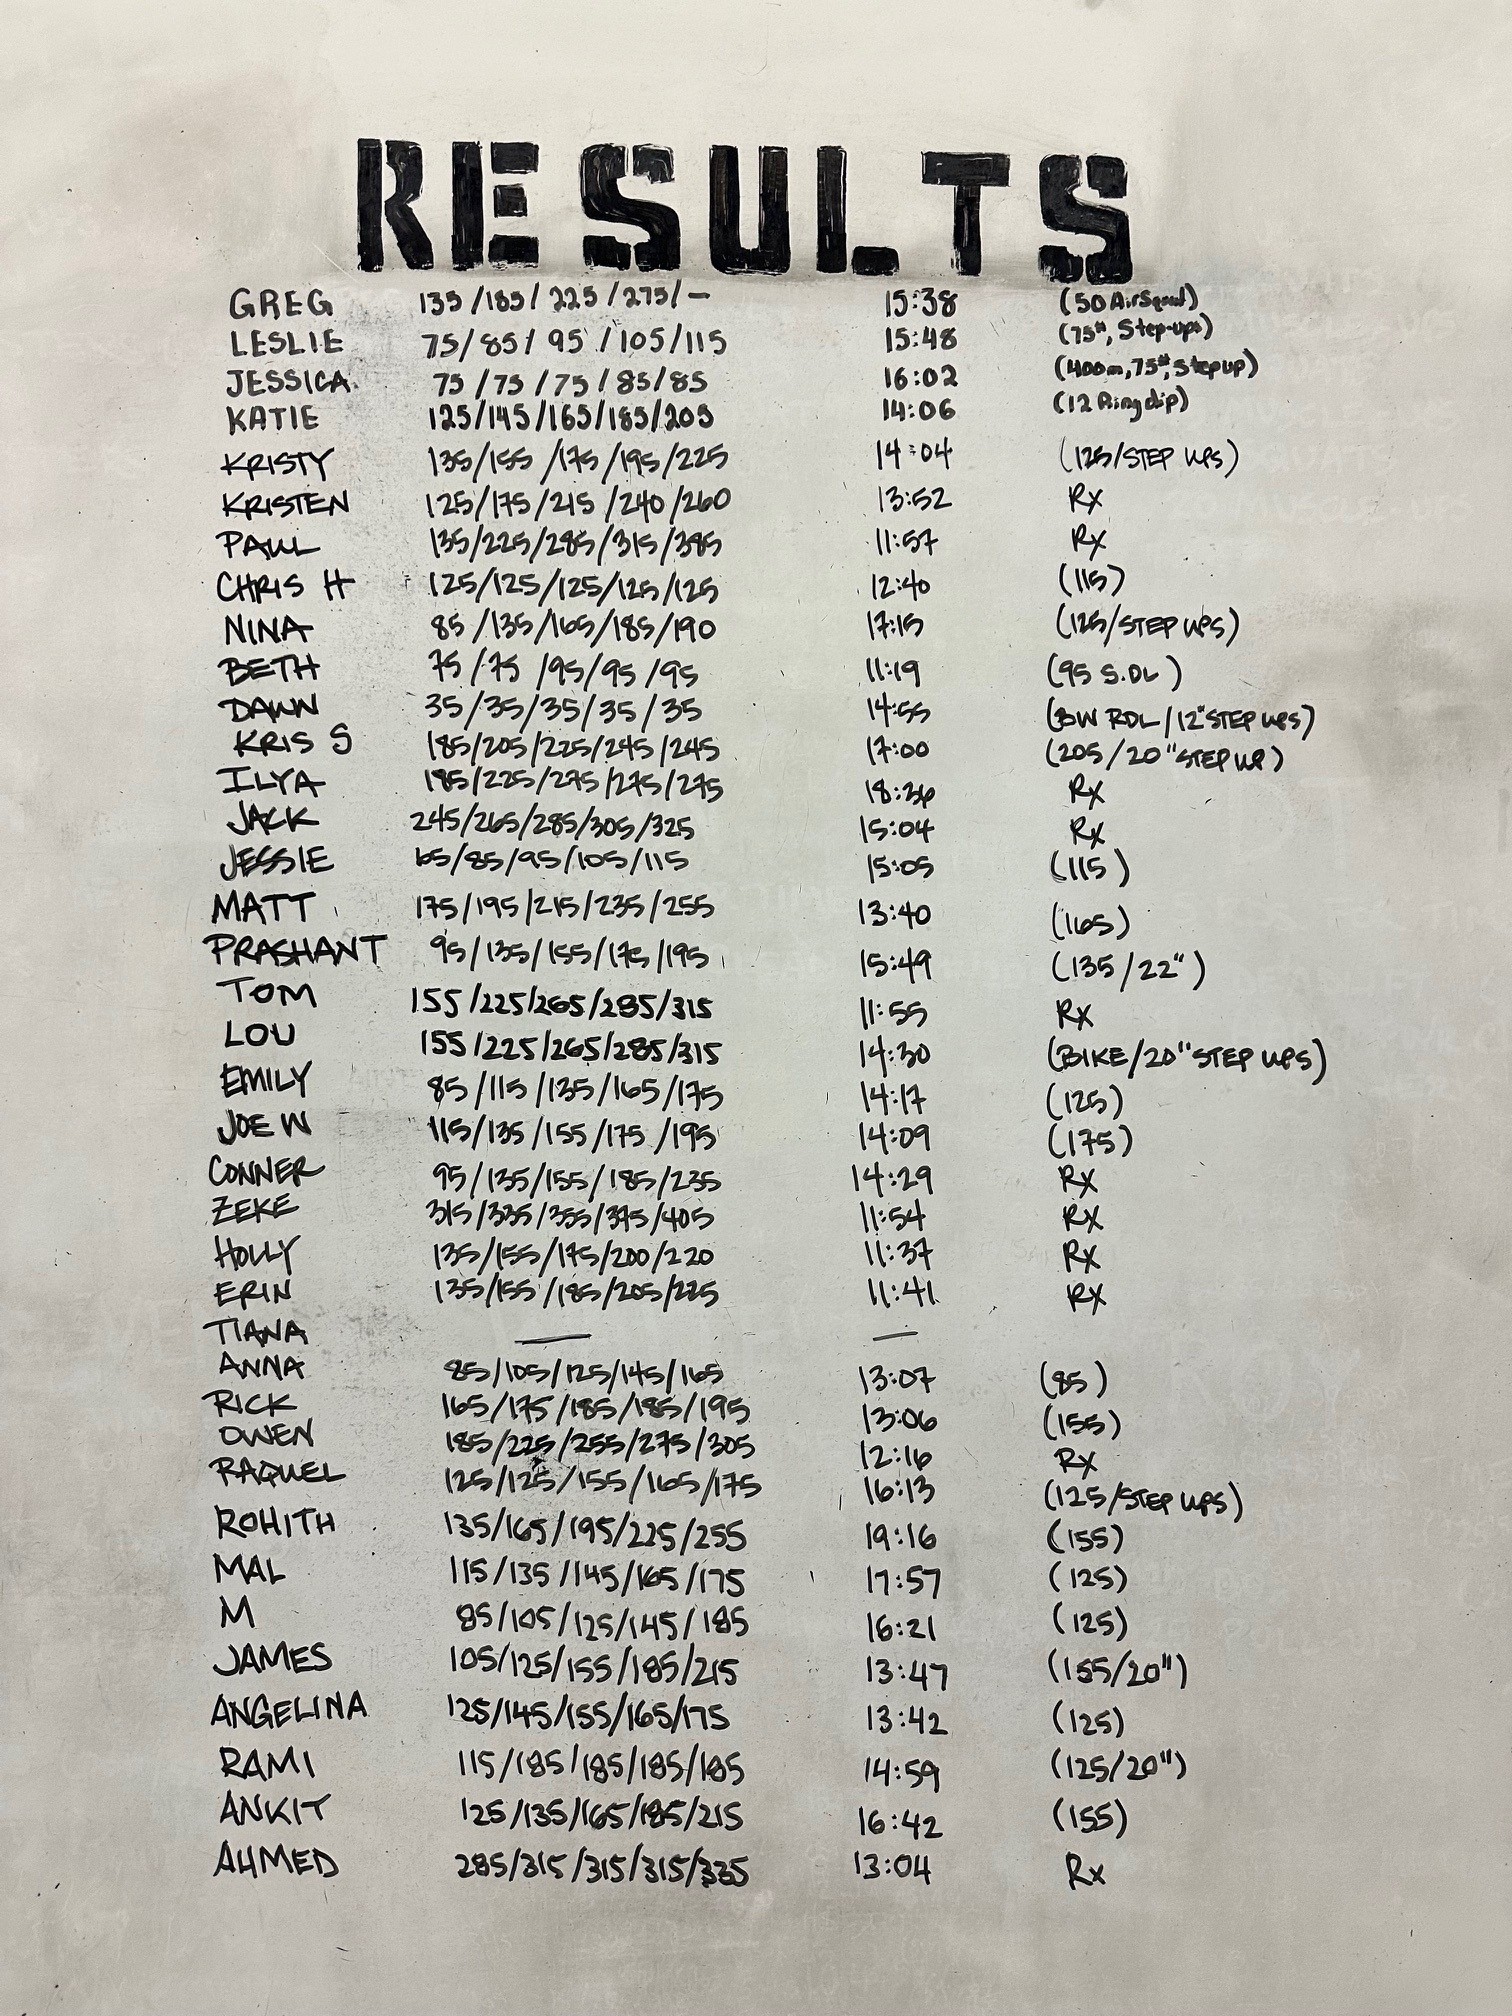 RESULTS
GREG 135/185/225/275/— 15:38 (50 AirSquat)
LESLIE 75/85/95/105/115 15:48 (75#, Step-ups)
JESSICA 75/75/75/85/85 16:02 (400m, 75#, Step up)
KATIE 125/145/165/185/205 14:06 (12 Ring dip)
KRISTY 135/155/175/195/225 14:04 (125/STEP UPS)
KRISTEN 125/175/215/240/260 13:52 Rx
PAUL 135/225/285/315/385 11:57 Rx
CHRIS H 125/125/125/125/125 12:40 (115)
NINA 85/135/165/185/190 17:15 (125/STEP UPS)
BETH 75/75/95/95/95 11:19 (95 S.DL)
DAWN 35/35/35/35/35 14:55 (BW RDL/12" STEP UPS)
KRIS S 185/205/225/245/245 17:00 (205/20" STEP UP)
ILYA 185/225/275/275/275 18:36 Rx
JACK 245/265/285/305/325 15:04 Rx
JESSIE 65/85/95/105/115 15:05 (115)
MATT 175/195/215/235/255 13:40 (165)
PRASHANT 95/135/155/175/195 15:49 (135/22")
TOM 155/225/265/285/315 11:55 Rx
LOU 155/225/265/285/315 14:30 (BIKE/20" STEP UPS)
EMILY 85/115/135/165/175 14:17 (125)
JOE W 115/135/155/175/195 14:09 (175)
CONNER 95/135/155/185/235 14:29 Rx
ZEKE 315/335/355/375/405 11:54 Rx
HOLLY 135/155/175/200/220 11:37 Rx
ERIN 135/155/185/205/225 11:41 Rx
TIANA — —
ANNA 85/105/125/145/165 13:07 (85)
RICK 165/175/185/185/195 13:06 (155)
OWEN 185/225/255/275/305 12:16 Rx
RAQUEL 125/125/155/165/175 16:13 (125/STEP UPS)
ROHITH 135/165/195/225/255 19:16 (155)
MAL 115/135/145/165/175 17:57 (125)
M 85/105/125/145/185 16:21 (125)
JAMES 105/125/155/185/215 13:47 (155/20")
ANGELINA 125/145/155/165/175 13:42 (125)
RAMI 115/185/185/185/185 14:59 (125/20")
ANKIT 125/135/165/185/215 16:42 (155)
AHMED 285/315/315/315/335 13:04 Rx